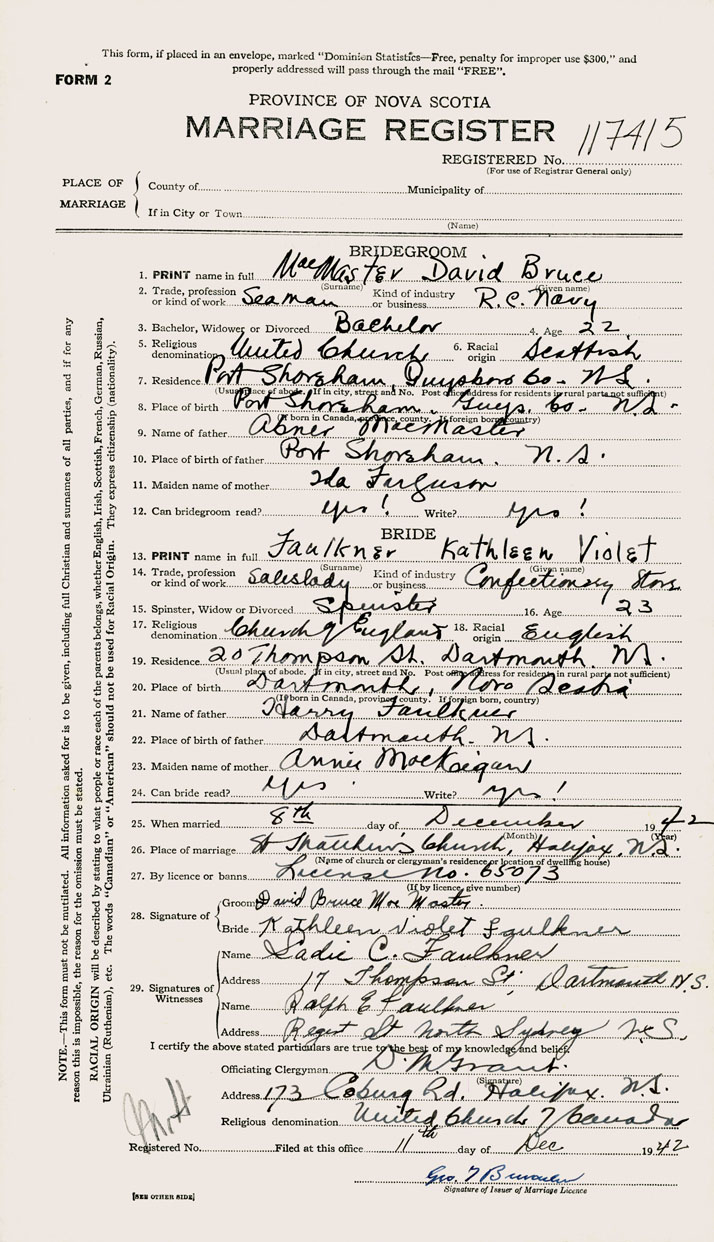 This form, if placed in an envelope, marked “Dominion Statistics—Free, penalty for improper use $300,” and
properly addressed will pass through the mail “FREE”.
FORM 2
PROVINCE OF NOVA SCOTIA
MARRIAGE REGISTER 117415
REGISTERED No.
(For use of Registrar General only)
PLACE OF MARRIAGE
County of Municipality of
If in City or Town
(Name)
BRIDEGROOM
1. PRINT name in full MacMaster David Bruce
(Surname) (Given name)
2. Trade, profession or kind of work Seaman Kind of industry or business R.C. Navy
3. Bachelor, Widower or Divorced Bachelor 4. Age 22
5. Religious denomination United Church 6. Racial origin Scottish
7. Residence Port Shoreham, Guysboro Co. N.S.
(Usual place of abode. If in city, street and No. Post office address for residents in rural parts not sufficient)
8. Place of birth Port Shoreham. Guys. Co. N.S.
(If born in Canada, province, county. If foreign born, country)
9. Name of father Abner MacMaster
10. Place of birth of father Port Shoreham. N.S.
11. Maiden name of mother Ida Ferguson
12. Can bridegroom read? yes! Write? yes!
BRIDE
13. PRINT name in full Faulkner Kathleen Violet
(Surname) (Given name)
14. Trade, profession or kind of work Saleslady Kind of industry or business Confectionery Store
15. Spinster, Widow or Divorced Spinster 16. Age 23
17. Religious denomination Church of England 18. Racial origin English
19. Residence 20 Thompson St. Dartmouth. N.S.
(Usual place of abode. If in city, street and No. Post office address for residents in rural parts not sufficient)
20. Place of birth Dartmouth, Nova Scotia
(If born in Canada, province, county. If foreign born, country)
21. Name of father Harry Faulkner
22. Place of birth of father Dartmouth. N.S.
23. Maiden name of mother Annie MacKeigan
24. Can bride read? yes Write? yes!
25. When married 8th day of December 1942
(Month) (Year)
26. Place of marriage St Matthew's Church, Halifax. N.S.
(Name of church or clergyman's residence or location of dwelling house)
27. By licence or banns License no. 65073
(If by licence, give number)
28. Signature of
Groom David Bruce MacMaster.
Bride Kathleen Violet Faulkner
29. Signatures of Witnesses
Name Sadie C. Faulkner
Address 17 Thompson St, Dartmouth N.S.
Name Ralph E Faulkner
Address Regent St North Sydney N.S.
I certify the above stated particulars are true to the best of my knowledge and belief.
Officiating Clergyman D. M. Grant.
(Signature)
Address 173 Coburg Rd. Halifax. N.S.
Religious denomination United Church of Canada
Registered No. Filed at this office 11th day of Dec 1942
Geo.
Signature of Issuer of Marriage Licence
[SEE OTHER SIDE]
NOTE.—This form must not be mutilated. All information asked for is to be given, including full Christian and surnames of all parties, and if for any
reason this is impossible, the reason for the omission must be stated.
RACIAL ORIGIN will be described by stating to what people or race each of the parents belongs, whether English, Irish, Scottish, French, German, Russian,
Ukrainian (Ruthenian), etc. The words “Canadian” or “American” should not be used for Racial Origin. They express citizenship (nationality).